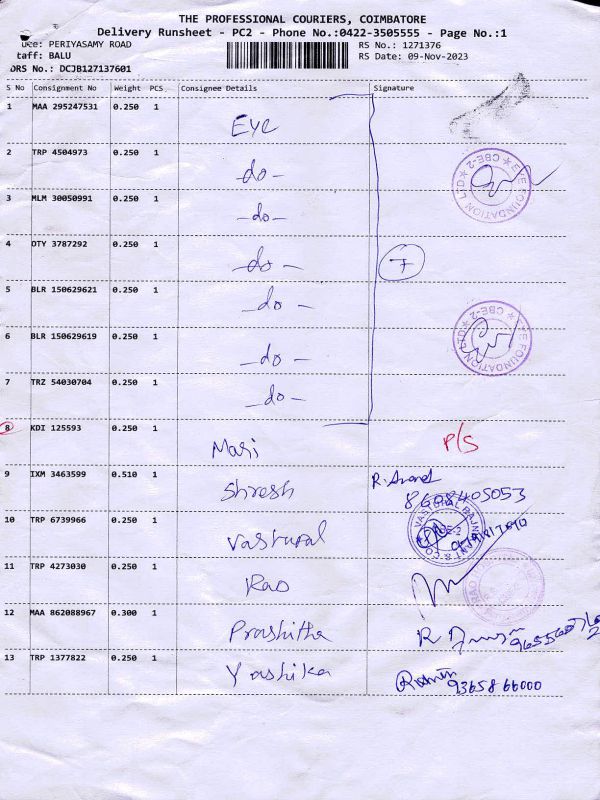 THE PROFESSIONAL COURIERS, COIMBATORE
Delivery Runsheet - PC2 - Phone No.:0422-3505555 - Page No.:1
uce: PERIYASAMY ROAD
RS No.: 1271376
taff: BALU
RS Date: 09-Nov-2023
DRS No.: DCJB127137601
S No Consignment No Weight PCS Consignee Details Signature
1 MAA 295247531 0.250 1
Eye
2 TRP 4504973 0.250 1
-do-
EYE FOUNDATION LTD ★ CBE-2 ★
3 MLM 30050991 0.250 1
-do-
4 DTY 3787292 0.250 1
-do-
7
5 BLR 150629621 0.250 1
-do-
6 BLR 150629619 0.250 1
-do-
EYE FOUNDATION LTD ★ CBE-2 ★
7 TRZ 54030704 0.250 1
-do-
8 KDI 125593 0.250 1
Mari
P/S
9 IXM 3463599 0.510 1
Shresh
R. Anand
8608405053
10 TRP 6739966 0.250 1
Vastupal
VASTUPAL RAJNIKANT & CO
11 TRP 4273030 0.250 1
Rao
12 MAA 862088967 0.300 1
Prashitha
R
13 TRP 1377822 0.250 1
Yashika
93658 66000